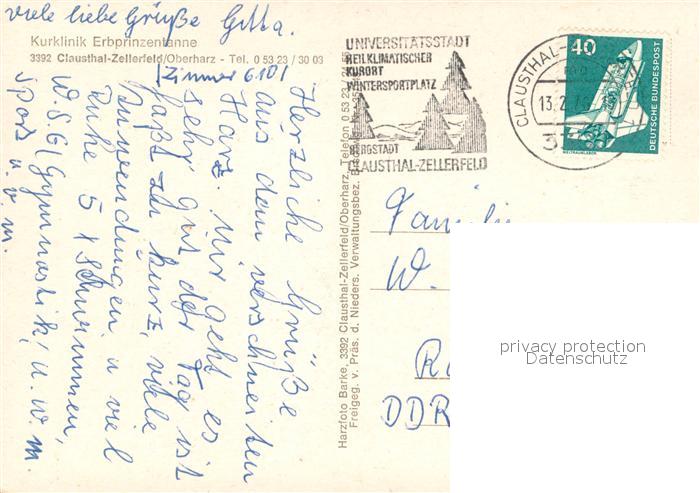 viele liebe Grüße Gitta.
Kurklinik Erbprinzentanne
3392 Clausthal-Zellerfeld/Oberharz - Tel. 0 53 23 / 30 03
(Zimmer 610)
Herzliche Grüße
aus dem verschneiten
Harz. Mir geht es
sehr gut der Tag ist
fast zu kurz, viele
Anwendungen u viel
Ruhe 5 x Schwimmen,
W.S.G/Gymnastik, u. w. m.
Spos u. v. m.
Harzfoto Barke, 3392 Clausthal-Zellerfeld/Oberharz, Telefon 0 53 23
Freigeg. v. Präs. d. Nieders. Verwaltungsbez.
UNIVERSITÄTSSTADT
HEILKLIMATISCHER
KURORT
WINTERSPORTPLATZ
BERGSTADT
CLAUSTHAL-ZELLERFELD
CLAUSTHAL-
13.2.7
3
40
DEUTSCHE BUNDESPOST
WELTRAUMLABOR
Familie
W.
R
DDR
privacy protection
Datenschutz